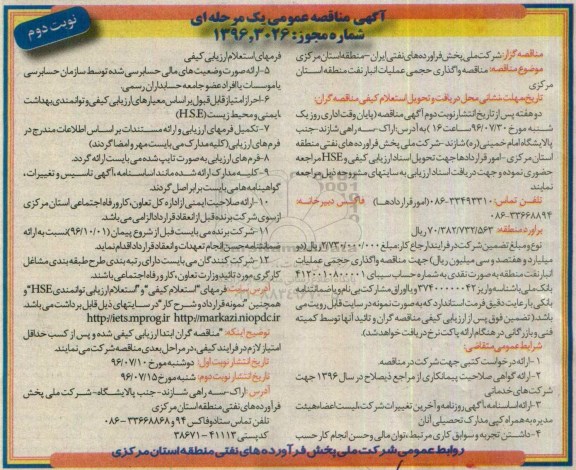 آگهی مناقصه عمومی یک مرحله ای
شماره مجوز: ۱۳۹۶,۳۰۲۶
نوبت دوم
مناقصه گزار: شرکت ملی پخش فرآورده های نفتی ایران – منطقه استان مرکزی
موضوع مناقصه: مناقصه واگذاری حجمی عملیات انبار نفت منطقه استان
مرکزی
تاریخ مهلت، نشانی محل دریافت و تحویل استعلام کیفی مناقصه گران:
دو هفته پس از تاریخ انتشار نوبت دوم آگهی مناقصه (پایان وقت اداری روز یک
شنبه مورخ ۹۶/۰۷/۳۰ ساعت ۱۶) به آدرس اراک- سه راهی شازند- جنب
پالایشگاه امام خمینی (ره) شازند- شرکت ملی پخش فرآورده های نفتی منطقه
استان مرکزی- امور قراردادها جهت تحویل اسناد ارزیابی کیفی و HSE مراجعه
حضوری نموده و جهت دریافت اسناد ارزیابی به سایتهای مشروحه ذیل مراجعه
نمایند
تلفن تماس: ۳۳۴۹۳۳۱۰-۰۸۶ (امور قراردادها) فاکس دبیرخانه:
۰۸۶-۳۳۶۶۸۸۹۴
برآورد منطقه: ۷۰/۳۸۲/۷۳۲/۵۶۳ ریال
نوع و مبلغ تضمین شرکت در فرایند ارجاع کار: مبلغ ۲/۷۳۰/۰۰۰/۰۰۰ ریال (دو
میلیارد و هفتصد و سی میلیون ریال) جهت مناقصه واگذاری حجمی عملیات
انبار نفت منطقه به صورت نقدی به شماره حساب سیبای ۴۱۲۰۰۱۰۸۰۰۰۱
بانک ملی با شناسه واریز ۳۷۴۰۰۰۰۰۰۴۲ و یا اوراق مشارکت بی نام و یا ضمانتنامه
بانکی با رعایت دقیق فرمت استاندارد که به صورت نمونه در سایت قابل رویت می
باشد، (تضمین فوق پس از ارزیابی کیفی مناقصه گران و تائید آنها توسط کمیته
فنی و بازرگانی در هنگام ارائه پاکت نرخ دریافت خواهد شد).
شرایط عمومی متقاضی:
۱-ارائه درخواست کتبی جهت شرکت در مناقصه
۲-ارائه گواهی صلاحیت پیمانکاری از مراجع ذیصلاح در سال ۱۳۹۶ جهت
شرکت های خدماتی
۳-ارائه اساسنامه، آگهی روزنامه و آخرین تغییرات شرکت، لیست اعضاء هیئت
مدیره به همراه کپی مدارک تحصیلی آنان
۴-داشتن تجربه و سوابق کاری مرتبط، توان مالی و حسن انجام کار حسب
فرمهای استعلام ارزیابی کیفی
۵-ارائه صورت وضعیت های مالی حسابرسی شده توسط سازمان حسابرسی
یا موسسات یا افراد عضو جامعه حسابداران رسمی.
۶-احراز امتیاز قابل قبول بر اساس معیارهای ارزیابی کیفی و توانمندی بهداشت
،ایمنی و محیط زیست (H.S.E)
۷-تکمیل فرمهای ارزیابی و ارائه مستندات بر اساس اطلاعات مندرج در
فرم های ارزیابی (کلیه مدارک می بایست مهر و امضا گردند)
۸-فرم های ارزیابی به صورت تایپ شده می بایست ارائه گردد.
۹-کلیه مدارک ارائه شده مانند: اساسنامه، آگهی تاسیس و تغییرات،
گواهینامه ها می بایست برابر اصل گردند.
۱۰-ارائه صلاحیت ایمنی از اداره کل تعاون، کار و رفاه اجتماعی استان مرکزی
از سوی شرکت برنده قبل از انعقاد قرارداد الزامی می باشد.
۱۱-شرکت برنده می بایست قبل از شروع پیمان (۹۶/۱۰/۰۱) نسبت به ارائه
ضمانتنامه حسن انجام تعهدات و انعقاد قرارداد اقدام نماید.
۱۲-شرکت کنندگان می بایست دارای رتبه بندی طرح طبقه بندی مشاغل
کارگری مورد تائید وزارت تعاون، کار و رفاه اجتماعی باشند.
آدرس سایت: فرمهای "استعلام کیفی" و "استعلام ارزیابی توانمندی HSE" و
همچنین "نمونه قرارداد و شرح کار" در سایتهای ذیل قابل برداشت می باشد.
http://iets.mprog.ir http://markazi.niopdc.ir
توضیح اینکه: "مناقصه گران ابتدا ارزیابی کیفی شده و پس از کسب حداقل
امتیاز لازم در فرایند کیفی، در مراحل بعدی مناقصه شرکت می نمایند
تاریخ انتشار نوبت اول: دوشنبه مورخ ۹۶/۰۷/۱۰
تاریخ انتشار نوبت دوم: شنبه مورخ ۹۶/۰۷/۱۵
آدرس: اراک- سه راهی شازند- جنب پالایشگاه- شرکت ملی پخش
فرآورده های نفتی منطقه استان مرکزی
تلفن تماس ستاد و فاکس ۹۴ و ۳۳۶۶۸۸۶۸-۰۸۶
کد پستی ۴۱۱۱۳-۳۸۶۷۱
روابط عمومی شرکت ملی پخش فرآورده های نفتی منطقه استان مرکزی